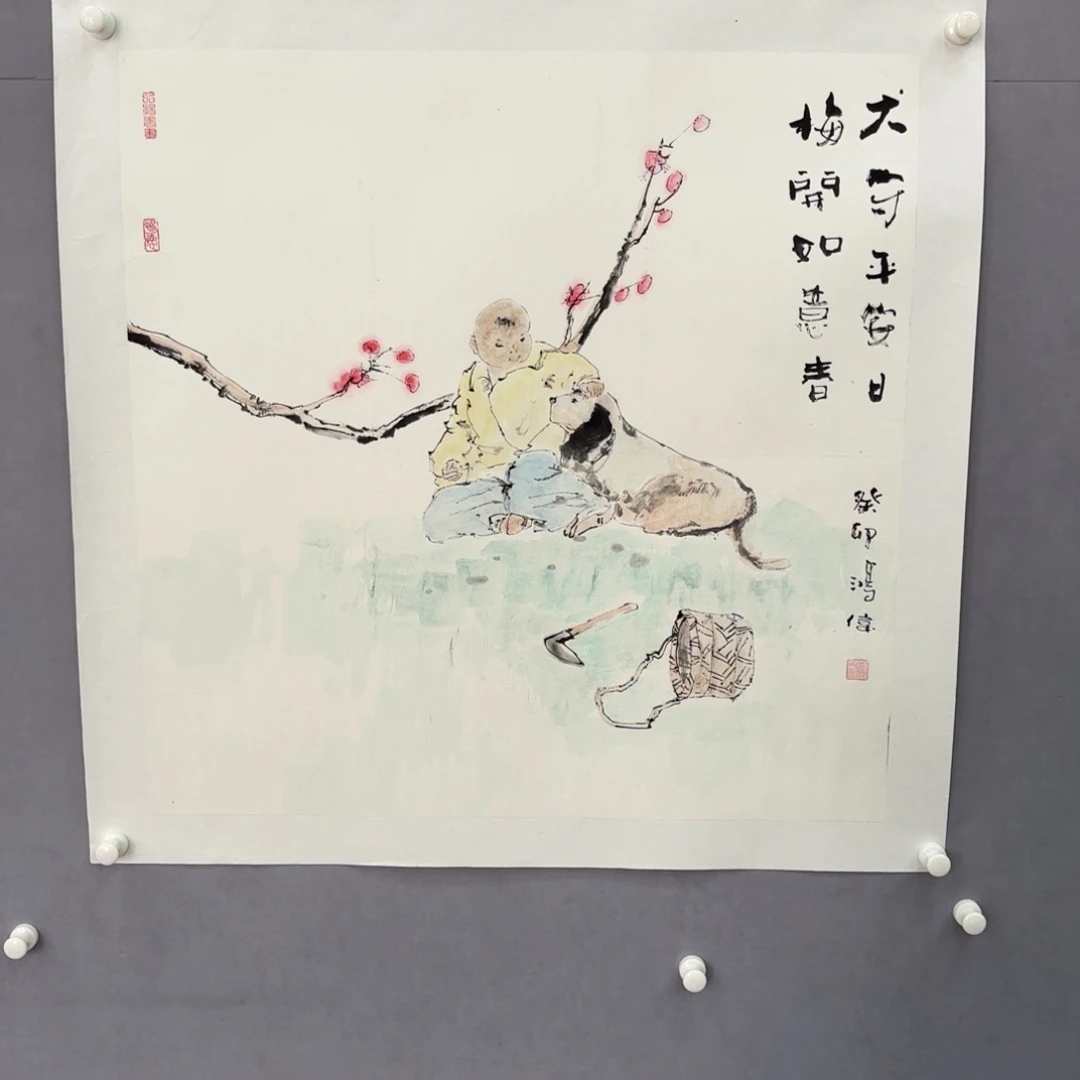 犬守平安日
梅開如意春
癸卯鴻偉